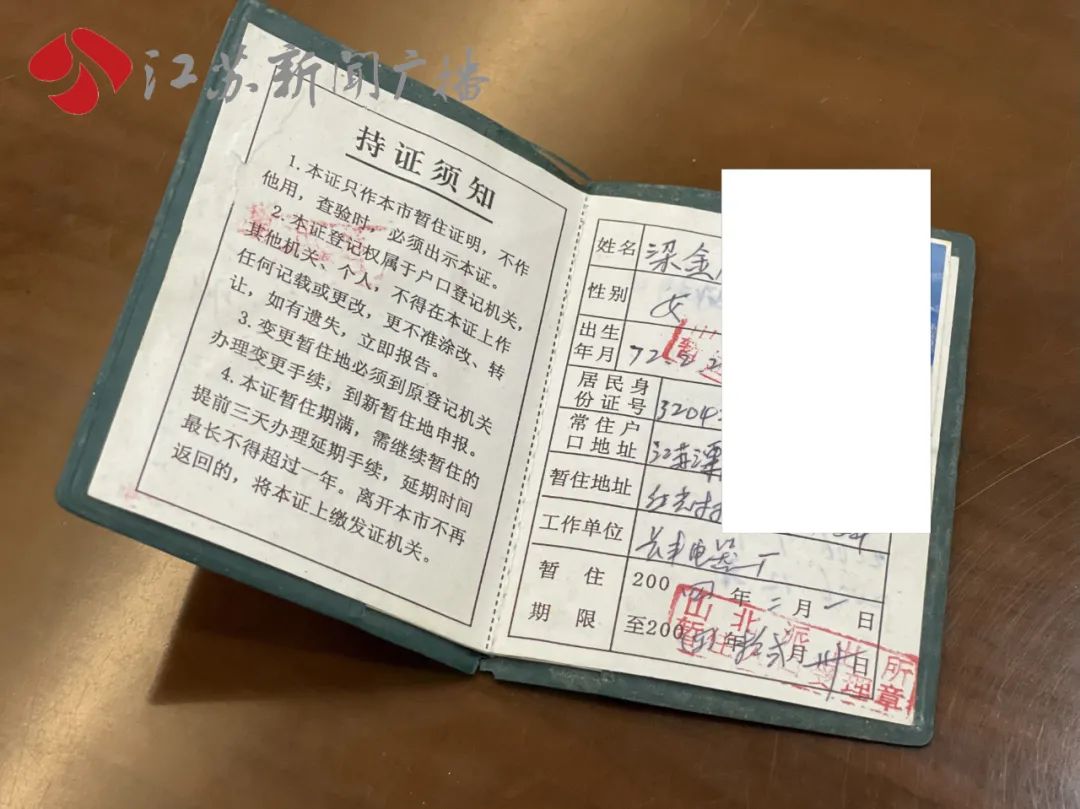 江苏新闻广播
持证须知
1.本证只作本市暂住证明，不作
他用，查验时，必须出示本证。
2.本证登记权属于户口登记机关，
其他机关、个人，不得在本证上作
任何记载或更改，更不准涂改、转
让，如有遗失，立即报告。
3.变更暂住地必须到原登记机关
办理变更手续，到新暂住地申报。
4.本证暂住期满，需继续暂住的
提前三天办理延期手续，延期时间
最长不得超过一年。离开本市不再
返回的，将本证上缴发证机关。
姓名 梁金
性别 女
出生
年月 72.
居民身
份证号 3204
常住户
口地址 江苏溧
暂住地址 红光村
工作单位 长丰电器厂
暂住
期限
200四年三月一日
至200四年拾贰月卅日
山北派出所
暂住 管理章